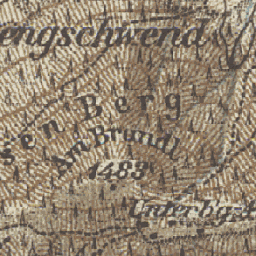 engschwend
gen Berg
Am Brandl
1483